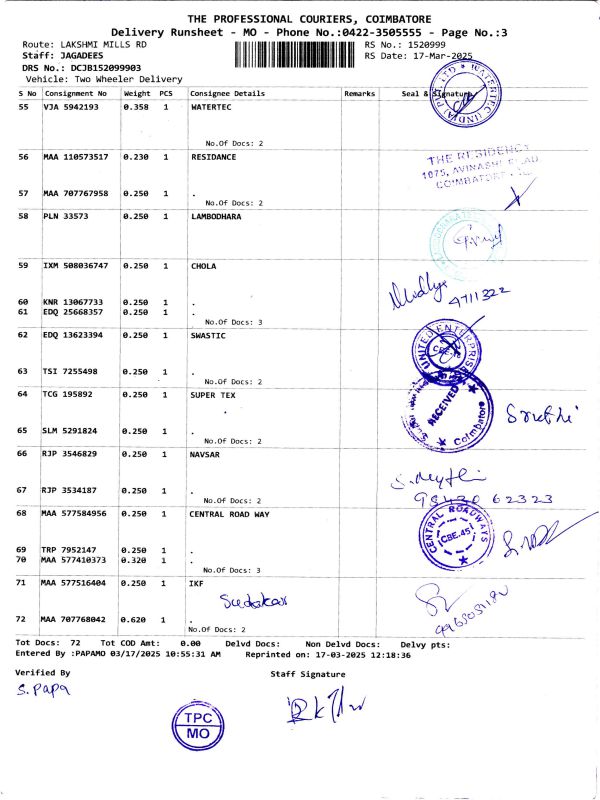 THE PROFESSIONAL COURIERS, COIMBATORE
Delivery Runsheet - MO - Phone No.:0422-3505555 - Page No.:3
Route: LAKSHMI MILLS RD RS No.: 1520999
Staff: JAGADEES RS Date: 17-Mar-2025
DRS No.: DCJB152099903
Vehicle: Two Wheeler Delivery
S No Consignment No Weight PCS Consignee Details Remarks Seal & Signature
55 VJA 5942193 0.358 1 WATERTEC
No.Of Docs: 2
56 MAA 110573517 0.230 1 RESIDANCE
THE RESIDENCY
1075, AVINASHI ROAD
COIMBATORE
57 MAA 707767958 0.250 1 .
No.Of Docs: 2
58 PLN 33573 0.250 1 LAMBODHARA
59 IXM 508036747 0.250 1 CHOLA
4711322
60 KNR 13067733 0.250 1 .
61 EDQ 25668357 0.250 1 .
No.Of Docs: 3
62 EDQ 13623394 0.250 1 SWASTIC
UNITED ENTERPRISES
CBE-18
63 TSI 7255498 0.250 1 .
No.Of Docs: 2
64 TCG 195892 0.250 1 SUPER TEX
RECEIVED
Coimbatore
65 SLM 5291824 0.250 1 .
No.Of Docs: 2
66 RJP 3546829 0.250 1 NAVSAR
67 RJP 3534187 0.250 1 .
No.Of Docs: 2
98430 62323
68 MAA 577584956 0.250 1 CENTRAL ROAD WAY
CENTRAL ROADWAYS
CBE.45
69 TRP 7952147 0.250 1 .
70 MAA 577410373 0.320 1 .
No.Of Docs: 3
71 MAA 577516404 0.250 1 IKF
Sudakar
72 MAA 707768042 0.620 1 .
No.Of Docs: 2
Tot Docs: 72 Tot COD Amt: 0.00 Delvd Docs: Non Delvd Docs: Delvy pts:
Entered By :PAPAMO 03/17/2025 10:55:31 AM Reprinted on: 17-03-2025 12:18:36
Verified By Staff Signature
S. Papa
TPC
MO